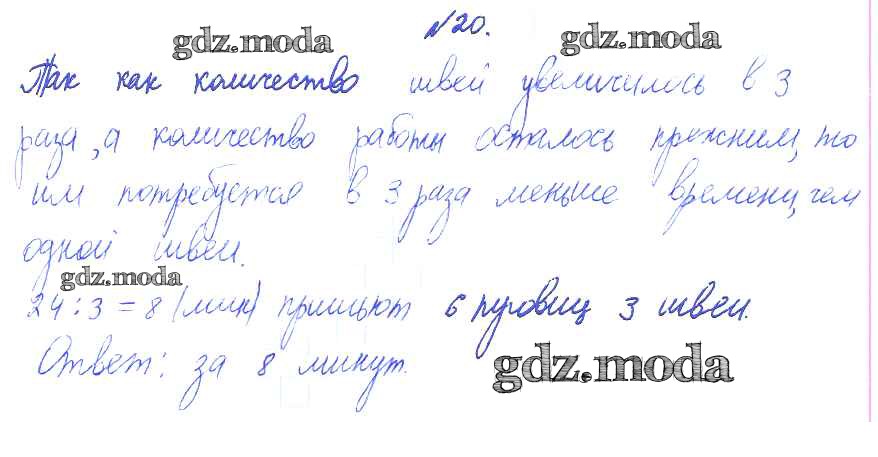 №20.
gdz.moda gdz.moda
Так как количество швей увеличилось в 3
раза, а количество работы осталось прежним, то
им потребуется в 3 раза меньше времени, чем
одной швеи.
gdz.moda
24 : 3 = 8 (мин) пришьют 6 пуговиц 3 швеи.
Ответ: за 8 минут.
gdz.moda